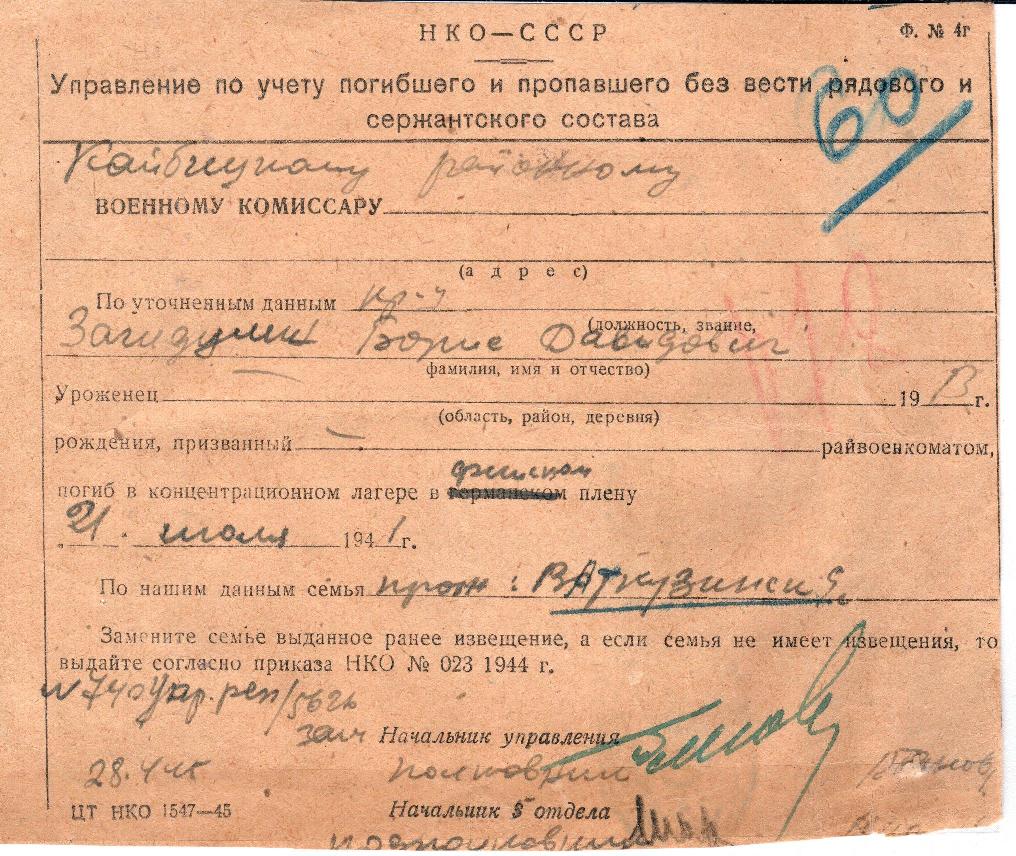 НКО—СССР
Ф. № 4г
Управление по учету погибшего и пропавшего без вести рядового и
сержантского состава
60
Кайбицкому районному
ВОЕННОМУ КОМИССАРУ
(а д р е с)
По уточненным данным кр-ц
(должность, звание,
Загидулин Борис Давидович
фамилия, имя и отчество)
Уроженец 1913 г.
(область, район, деревня)
рождения, призванный райвоенкоматом,
финском
погиб в концентрационном лагере в германском плену
21. июля 1941 г.
По нашим данным семья прож:
Замените семье выданное ранее извещение, а если семья не имеет извещения, то
выдайте согласно приказа НКО № 023 1944 г.
зам Начальник управления
28.4.45 полковник
ЦТ НКО 1547—45 Начальник 5 отдела
подполковник